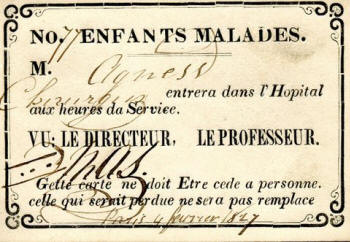 NO. 77 ENFANTS MALADES.
M. Agness
Chirurgie entrera dans l'Hopital
aux heures du Service.
VU: LE DIRECTEUR, LE PROFESSEUR.
Cette carte ne doit Etre cede a personne.
celle qui serait perdue ne sera pas remplace
Paris 4 fevrier 1827